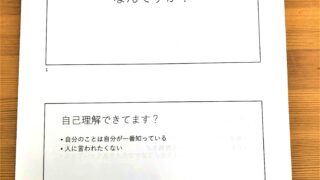 なんですか？
1
自己理解できてます？
• 自分のことは自分が一番知っている
• 人に言われたくない